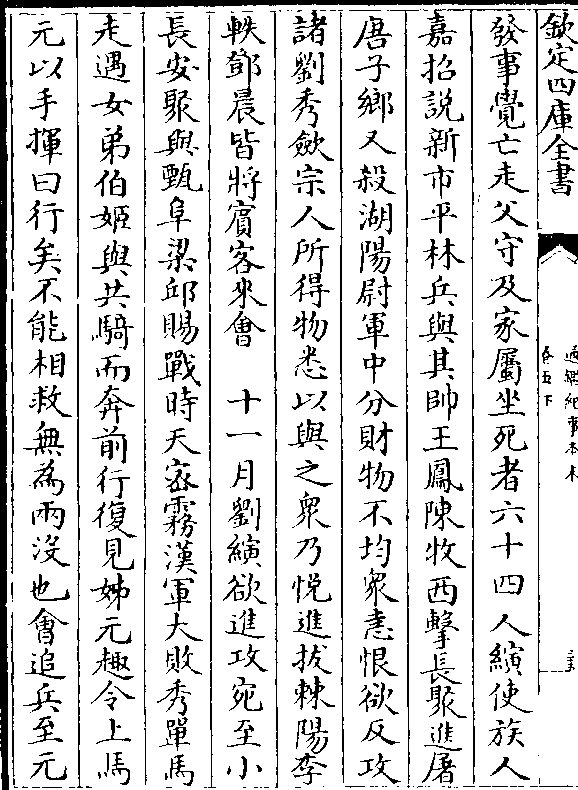 欽定四庫全書
通鑑紀事本末
卷五下
發事覺亡走父守及家屬坐死者六十四人縯使族人
嘉招説新市平林兵與其帥王鳳陳牧西擊長聚進屠
唐子鄉又殺湖陽尉軍中分財物不均衆恚恨欲反攻
諸劉秀斂宗人所得物悉以與之衆乃悦進拔棘陽李
軼鄧晨皆將賓客來會　十一月劉縯欲進攻宛至小
長安聚與甄阜梁邱賜戰時天宻霧漢軍大敗秀單馬
走遇女弟伯姬與共騎而奔前行復見姊元趣令上馬
元以手揮曰行矣不能相救無為兩沒也會追兵至元